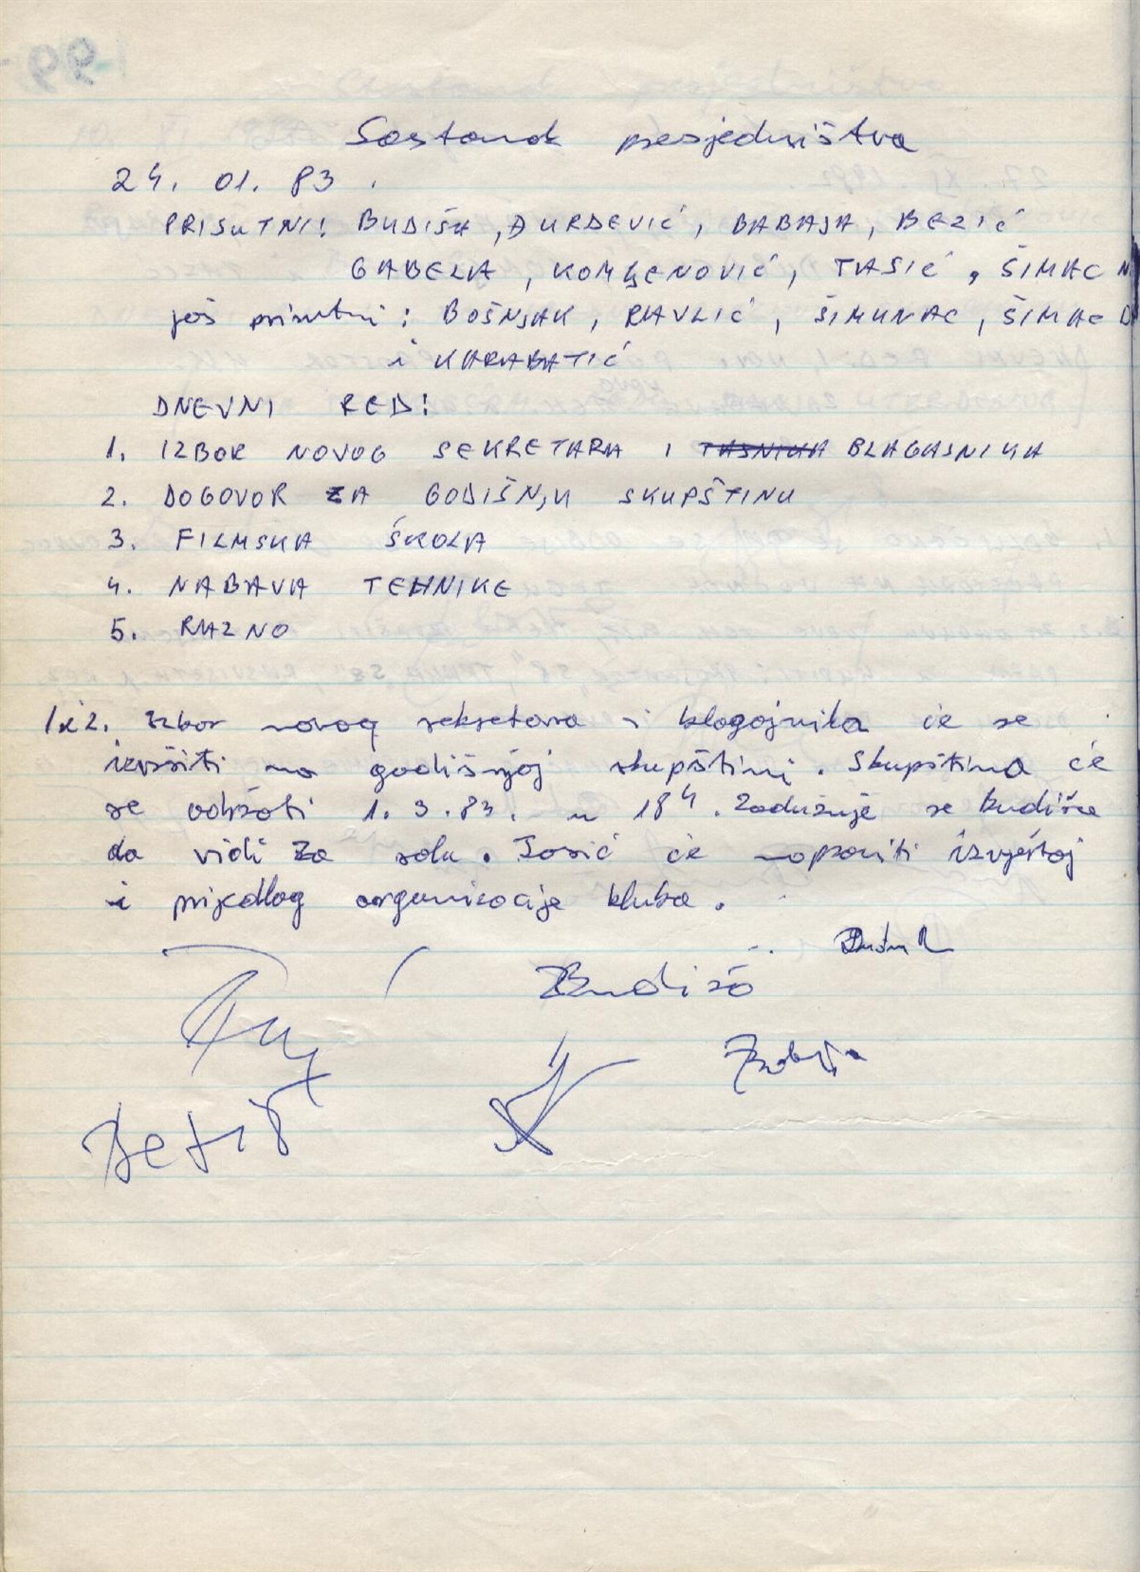 Sastanak presjedništva
24. 01. 83.
PRISUTNI: BUDIŠA, ĐURĐEVIĆ, BABAJA, BEZIĆ
GABELA, KOMJENOVIĆ, TASIĆ, ŠIMAC N
još prisutni: BOŠNJAK, RAVLIĆ, ŠIMUNAC, ŠIMAC D
i KARABATIĆ
DNEVNI RED:
1. IZBOR NOVOG SEKRETARA I BLAGAJNIKA
2. DOGOVOR ZA GODIŠNJU SKUPŠTINU
3. FILMSKA ŠKOLA
4. NABAVA TEHNIKE
5. RAZNO
1 i 2. Izbor novog sekretara i blagajnika će se
izvršiti na godišnjoj skupštini. Skupština će
se održati 1. 3. 83. u 18 h. Zadužuje se Budiša
da vidi za salu. Tasić će napraviti izvještaj
i prijedlog organizacije kluba.
Budiša
Babaja